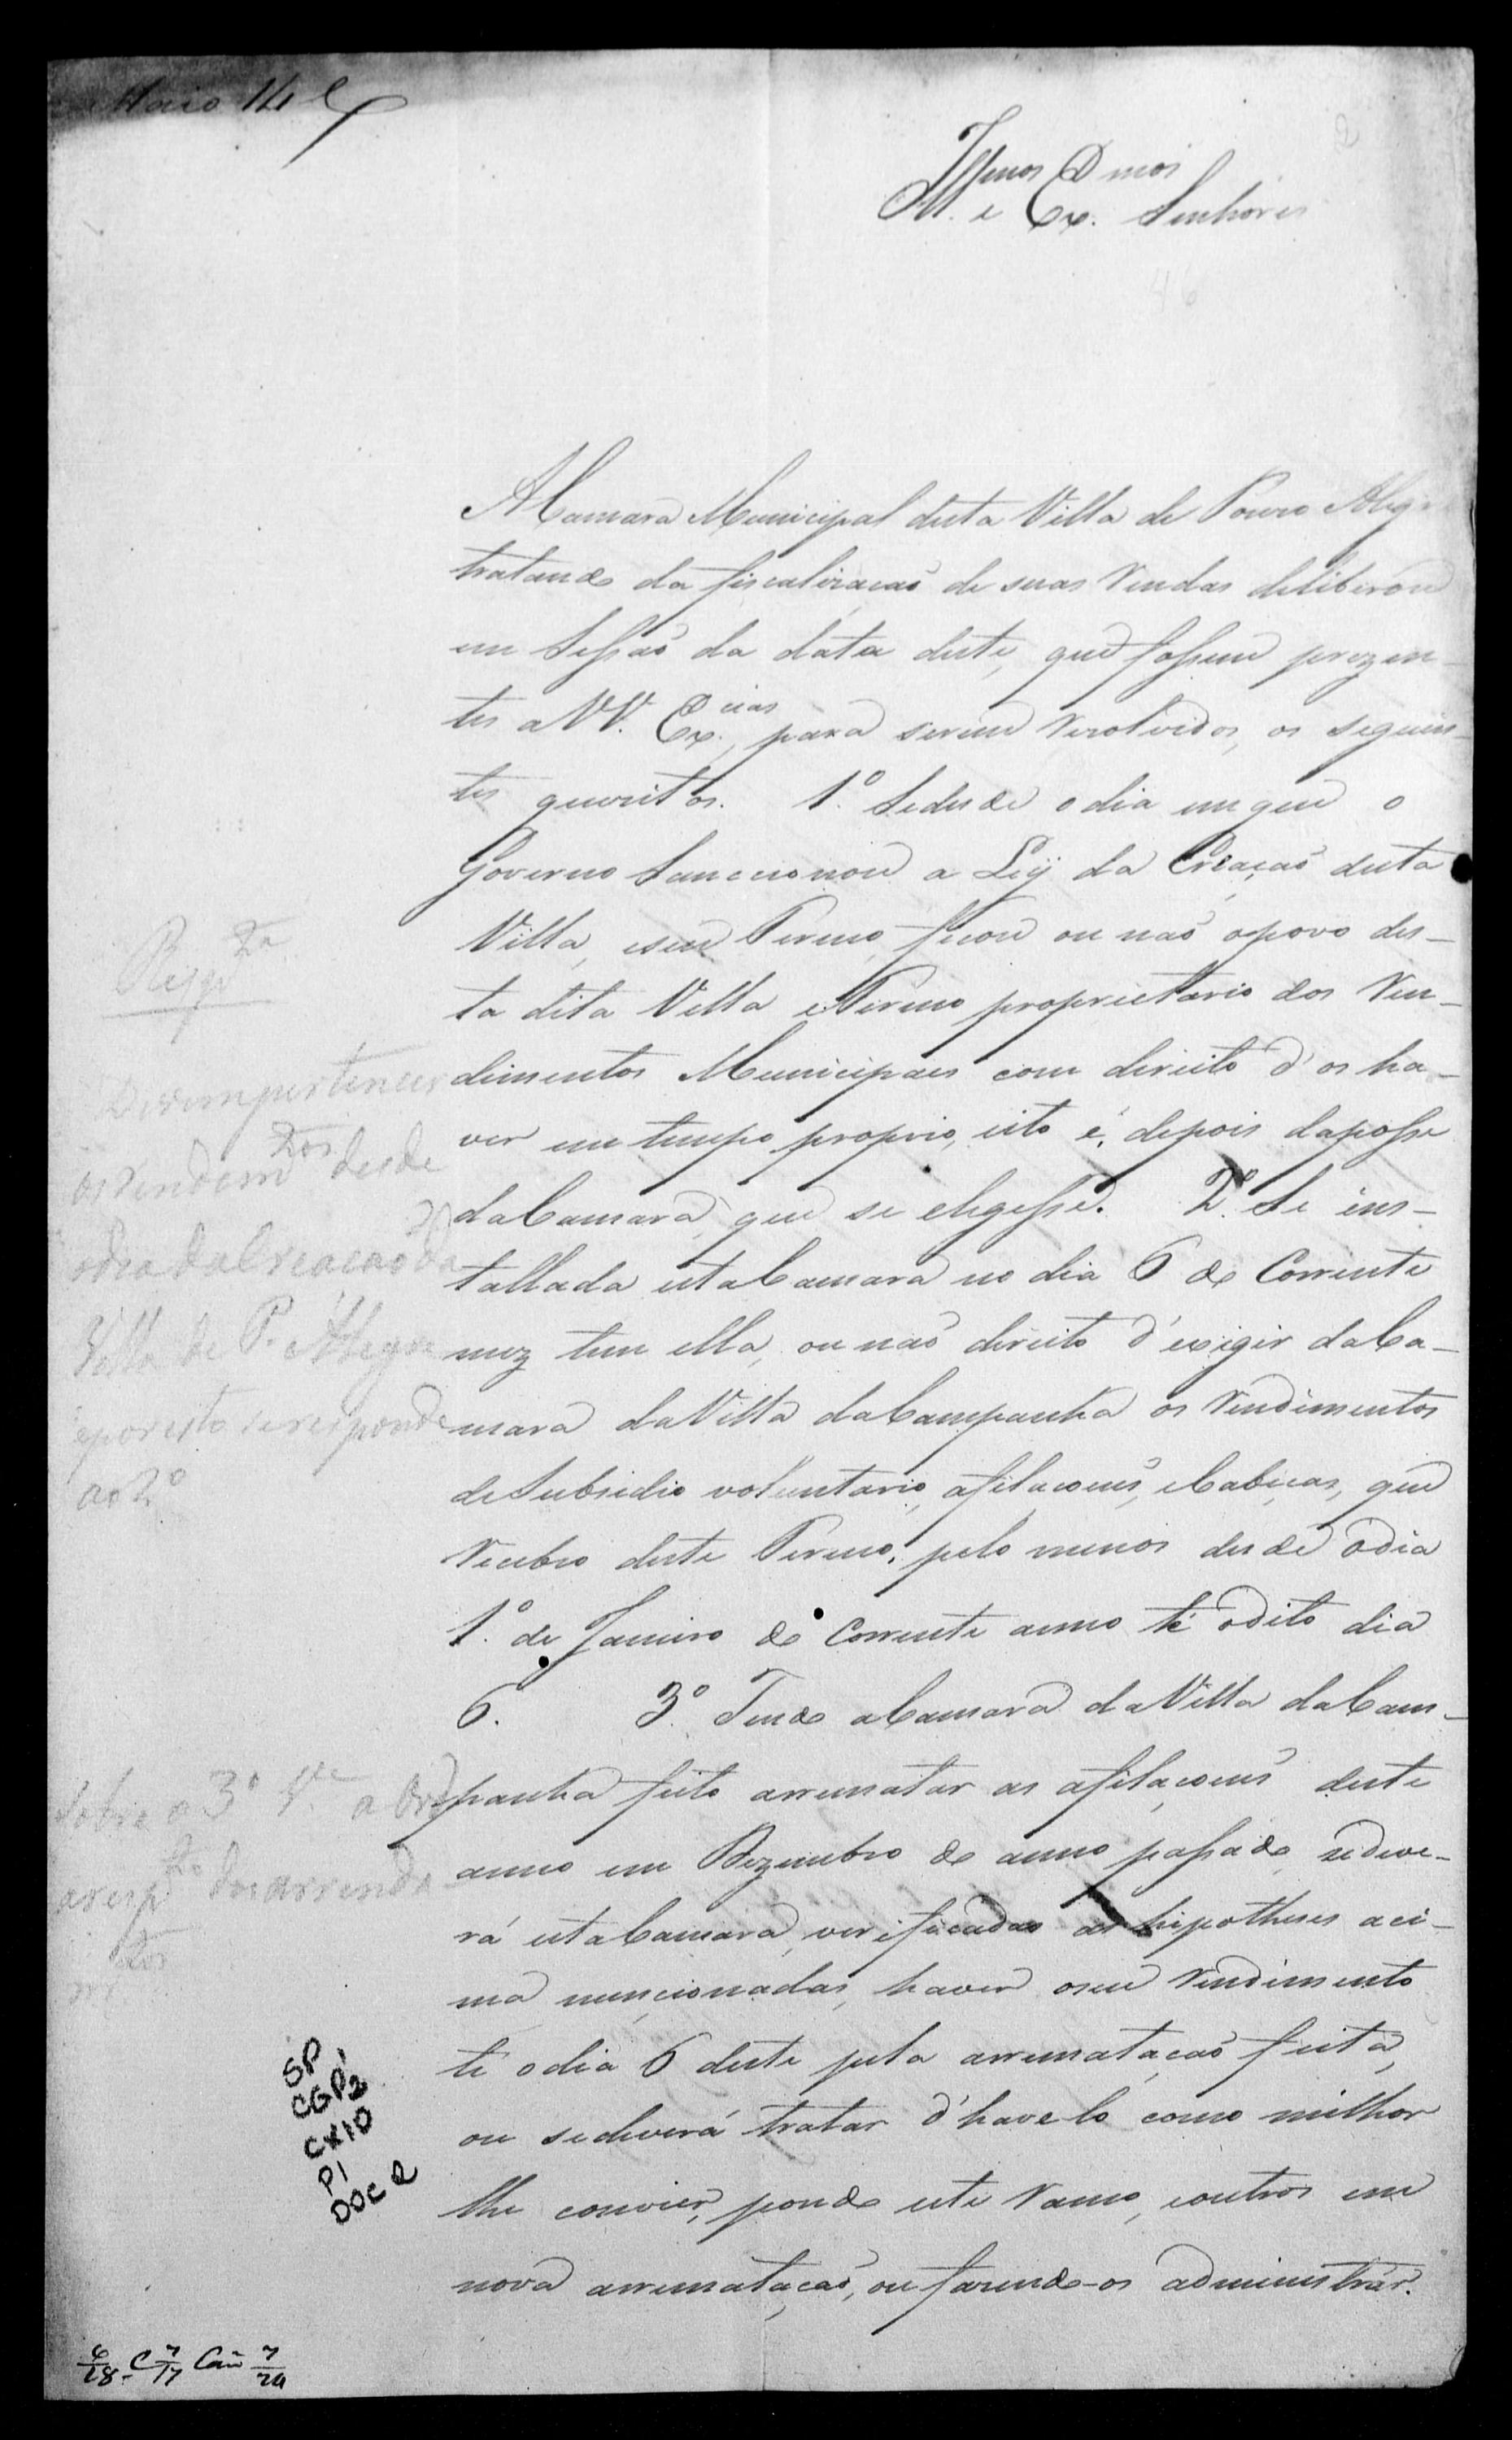 Maio 14
2
Illmos e Exmos Senhores
46
A Camara Municipal desta Villa de Pouzo Alegre
tratando da fiscalizacaõ de suas Rendas deliberou
em Sessaõ da data deste, que fossem prezen-
tes a VV. Excias, para serem resolvidos, os seguin-
tes quezitos. 1.º Se desde o dia em que o
Governo Sanccionou a Ley da Creaçaõ desta
Villa, e seu Termo, ficou ou naõ o povo des-
ta dita Villa e Termo proprietario dos Ren-
dimentos Municipaes com direito d'os ha-
ver em tempo proprio, isto é, depois da posse
da Camara, que se elegesse. 2.º Se ins-
tallada esta Camara no dia 6 do Corrente
mez tem ella, ou naõ direito d'exigir da Ca-
mara da Villa da Campanha os Rendimentos
de Subsidio voluntario, afilaçoens, e Cabeças, que
recebeo deste Termo, pelo menos desde o dia
1.º de Janeiro do Corrente anno té o dito dia
6. 3.º Tendo a Camara da Villa da Cam-
panha feito arrematar as afilaçoens deste
anno em Dezembro do anno passado, se deve-
rá esta Camara, verificadas as hipotheses aci-
ma mencionadas, haver o seu Rendimento
té o dia 6 deste pela arremataçaõ feita,
ou se deverá tratar d'havelo como milhor
lhe convier, pondo este Ramo, e outros em
nova arremataçaõ, ou fazendo-os administrar.
Respda
os Rendimtos desde
o dia da Creacaõ da
Villa de P. Alegre
e por isto se responde
ao 2.º
Sobre o 3.º
SP
CGP1
CX10
P1
DOC 2